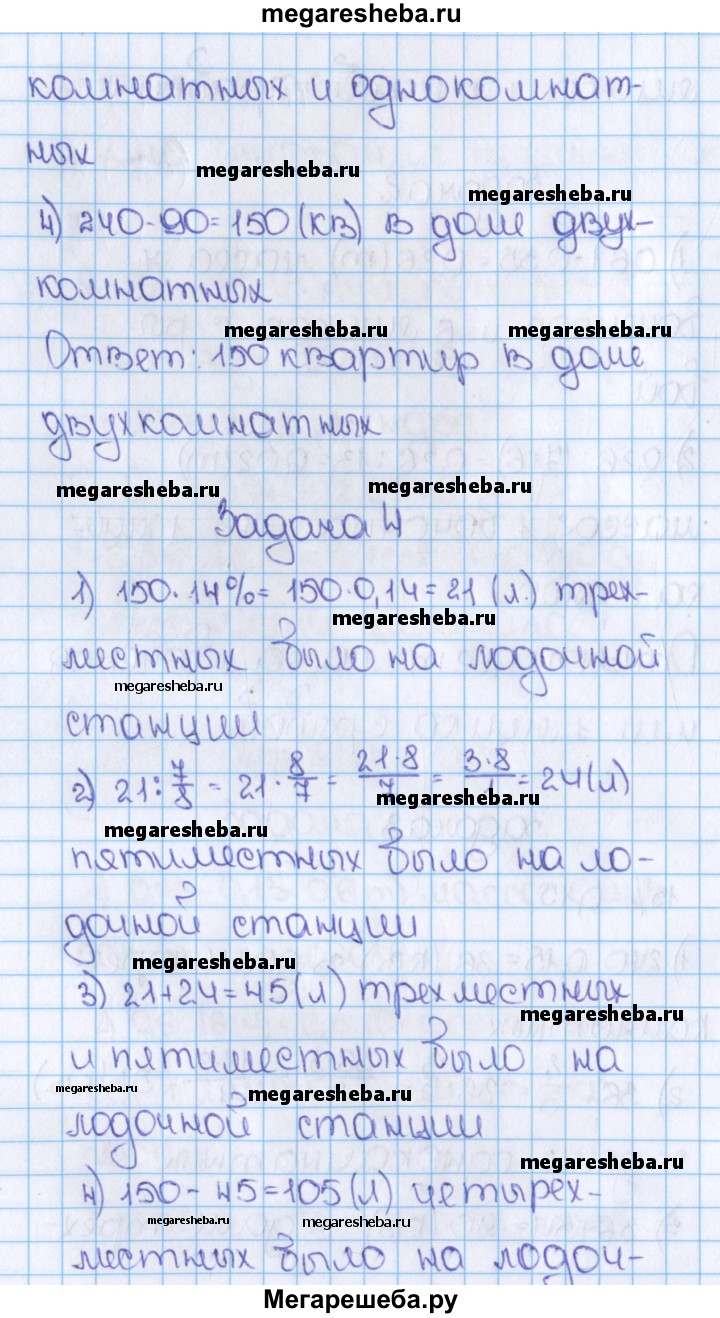 megaresheba.ru
комнатных и однокомнат-
ных
megaresheba.ru
megaresheba.ru
4) 240-90=150(кв) в доме двух-
комнатных
megaresheba.ru megaresheba.ru
Ответ: 150 квартир в доме
двухкомнатных
megaresheba.ru megaresheba.ru
Задача 4
1) 150·14%=150·0,14=21 (л.) трех-
megaresheba.ru
местных было на лодочной
megaresheba.ru
станции
2) 21:7/8=21·8/7=21·8/7=3·8/1=24(л)
megaresheba.ru
megaresheba.ru
пятиместных было на ло-
дочной станции
megaresheba.ru
3) 21+24=45(л) трехместных
megaresheba.ru
и пятиместных было на
megaresheba.ru megaresheba.ru
лодочной станции
megaresheba.ru
4) 150-45=105(л) четырех-
megaresheba.ru megaresheba.ru
местных было на лодоч-
Мегарешеба.ру